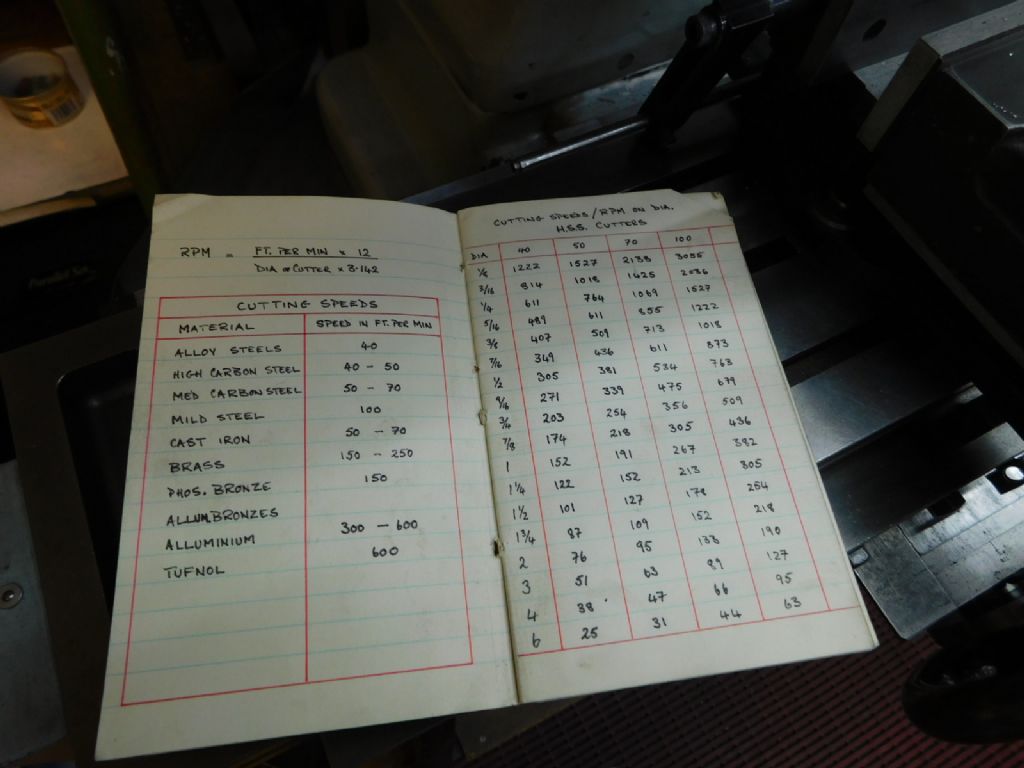 RPM = FT. PER MIN × 12
DIA OF CUTTER × 3·142
CUTTING SPEEDS
MATERIAL SPEED IN FT. PER MIN
ALLOY STEELS 40
HIGH CARBON STEEL 40 - 50
MED CARBON STEEL 50 - 70
MILD STEEL 100
CAST IRON 50 - 70
BRASS 150 - 250
PHOS. BRONZE 150
ALLUM.BRONZES
ALLUMINIUM 300 - 600
TUFNOL 600
CUTTING SPEEDS/RPM ON DIA.
H.S.S. CUTTERS
DIA 40 50 70 100
1/8 1222 1527 2138 3055
3/16 814 1018 1425 2036
1/4 611 764 1069 1527
5/16 489 611 855 1222
3/8 407 509 713 1018
7/16 349 436 611 873
1/2 305 381 534 763
9/16 271 339 475 679
3/4 203 254 356 509
7/8 174 218 305 436
1 152 191 267 382
1 1/4 122 152 213 305
1 1/2 101 127 178 254
1 3/4 87 109 152 218
2 76 95 133 190
3 51 63 89 127
4 38 47 66 95
6 25 31 44 63